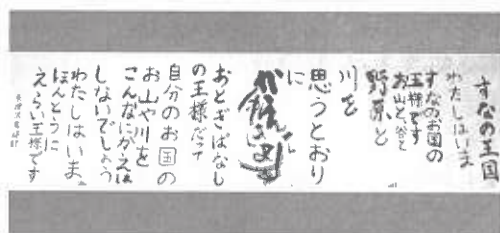 すなの王国
わたしはいま
すなのお国の
王様です
お山と谷と
野原と
川を
思うとおり
に
おとぎばなし
の王様だって
自分のお国の
お山や川を
こんなにかえは
しないでしょう
わたしはいま
ほんとうに
えらい王様です